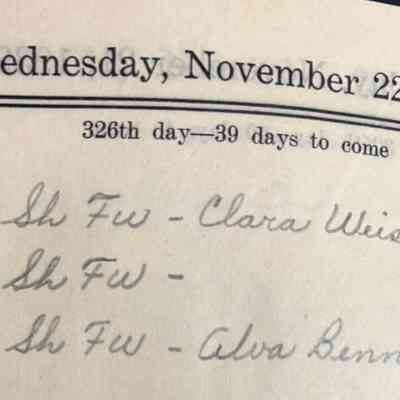 ednesday, November 22
326th day—39 days to come
Sh Fw - Clara Weis
Sh Fw -
Sh Fw - Alva Benn